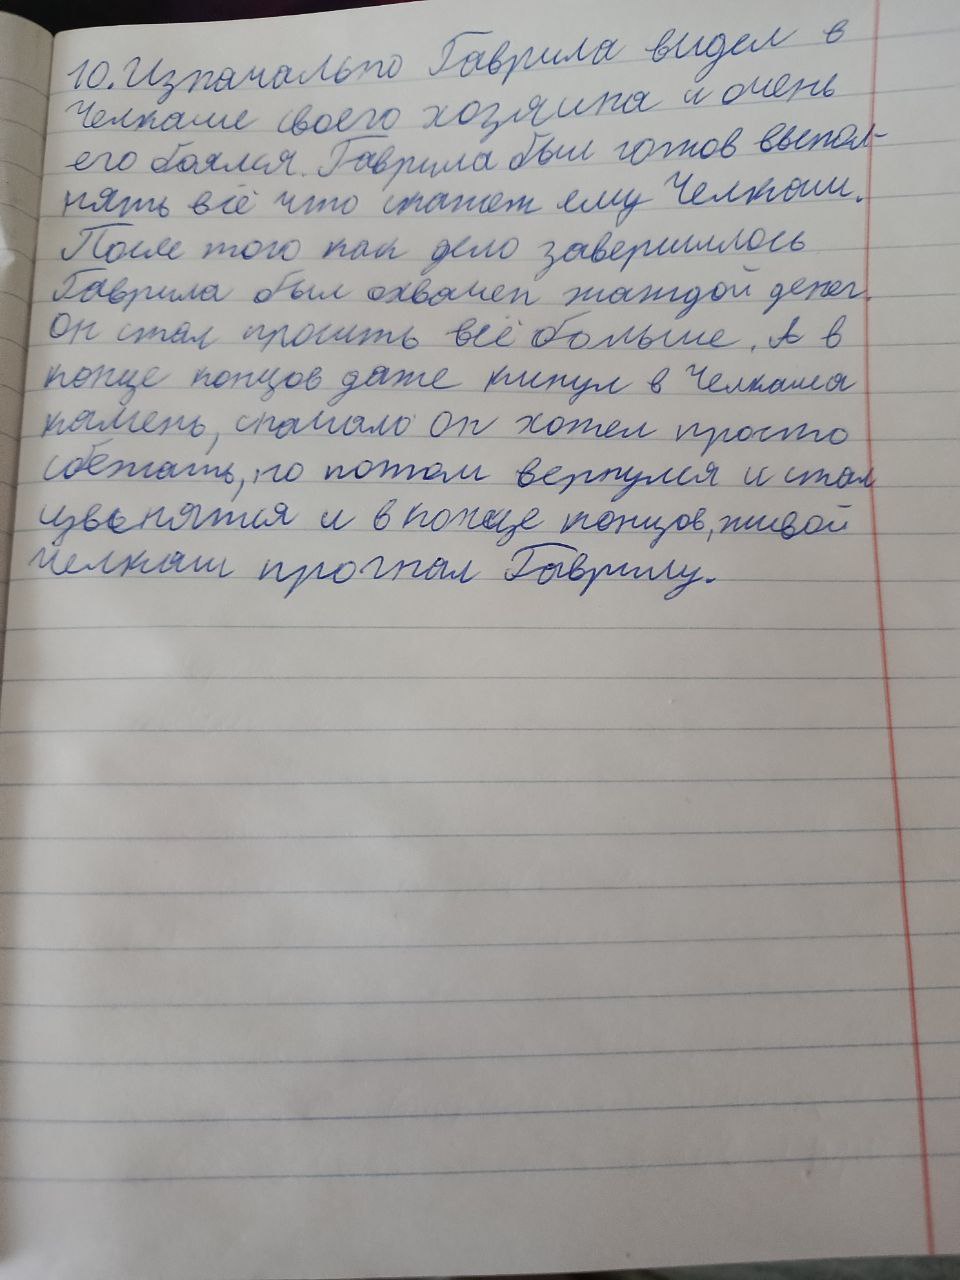 10. Изначально Гаврила видел в
Челкаше своего хозяина и очень
его боялся. Гаврила был готов выпол-
нять всё что скажет ему Челкаш.
После того как дело завершилось
Гаврила был охвачен жаждой денег.
Он стал просить всё больше. А в
конце концов даже кинул в Челкаша
камень, сначало он хотел просто
сбежать, но потом вернулся и стал
извенятся и в конце концов, живой
Челкаш прогнал Гаврилу.